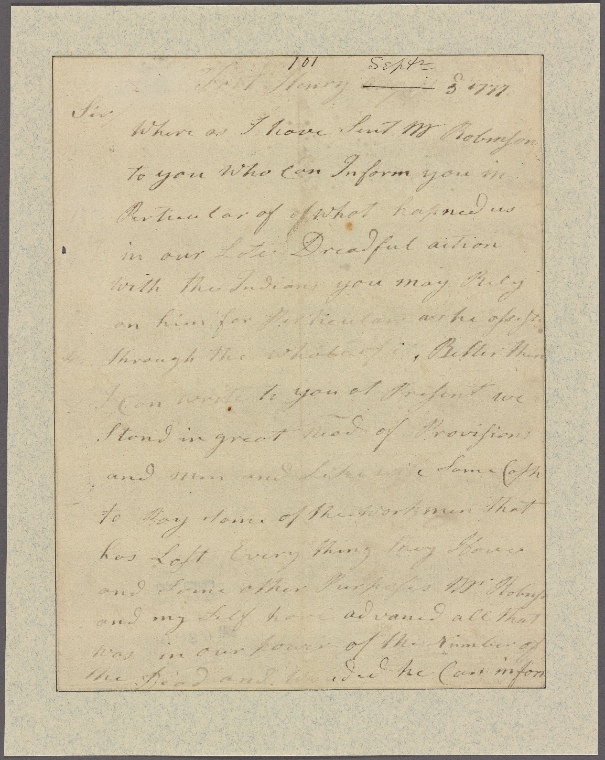 101 Septr
Fort Henry 3 1777
Sir
Where as I have Sent Mr Robinson
to you Who Can Inform you in
Perticular of of What hapned us
in our Late Dreadful aition
With the Indians you may Rely
on him for Particulars as he
through the Whole of it, Better then
I Can wrote to you at Present we
Stand in great Need of Provisions
and men and Likewise Some Cash
to Pay some of the workmen that
has Lost Every thing they Have
and Some other Purposes Mr Robins
and my Self have advanced all that
was in our power of the number of
the Dead and Wounded he Can inform